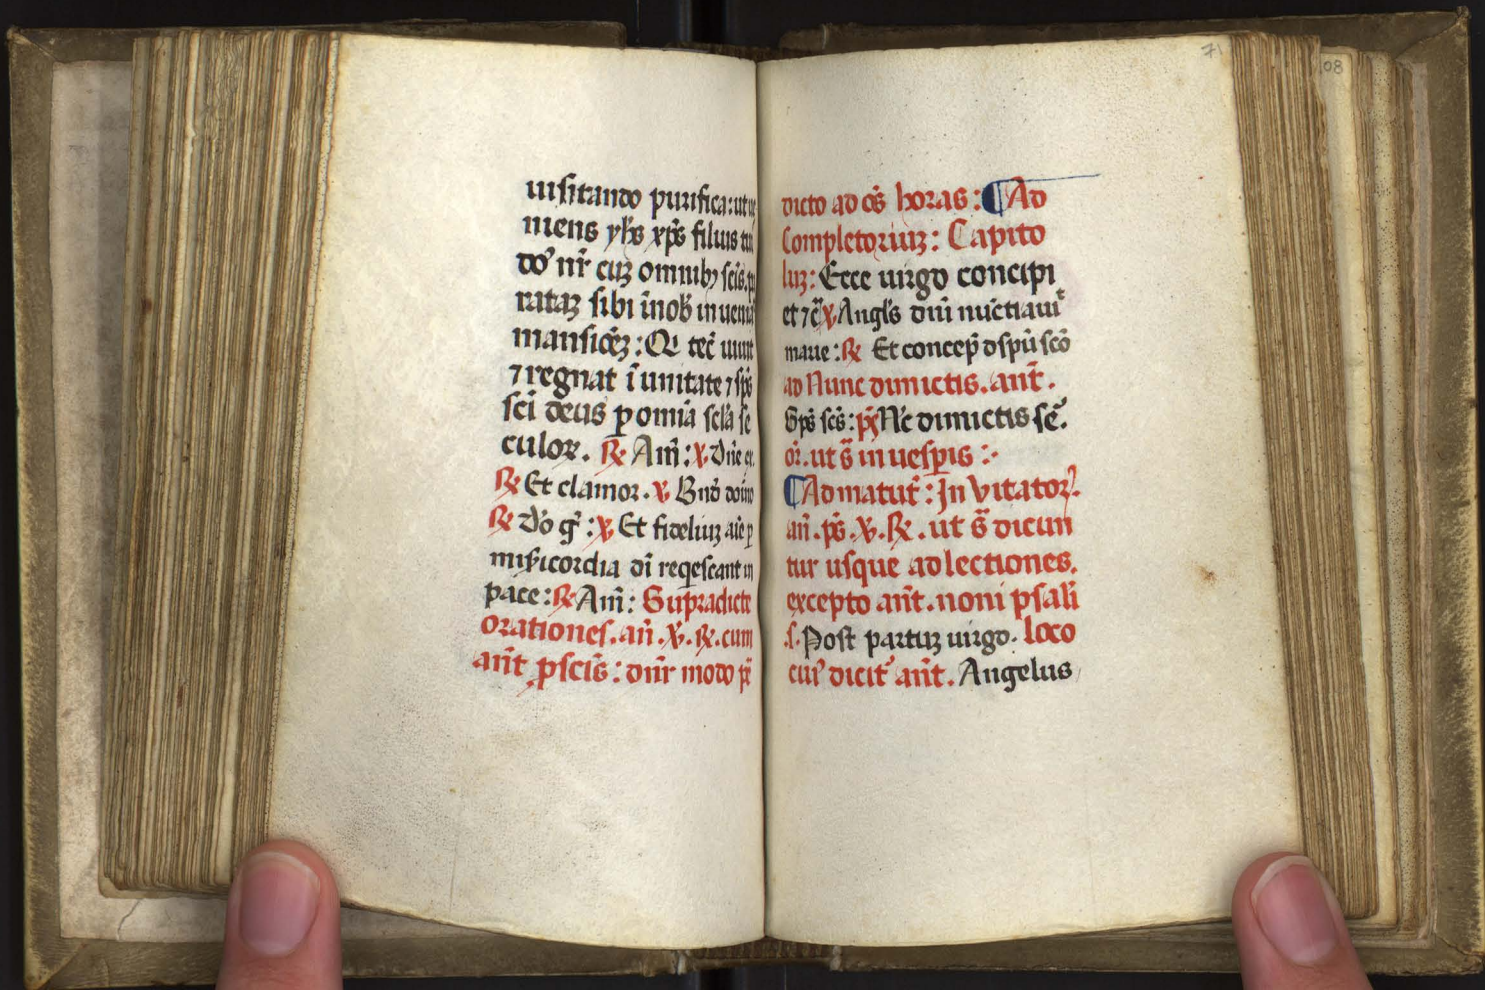 uisitando purifica: ut ue
niens yħs xp̄s filius tuꝰ
dōꝰ nr̄ cuꝫ omnibꝫ scīs. pa
ratāꝫ sibi ī nob̄ inueniat
mansiōeꝫ: Qi tec̄ uiuit
⁊ regnat ī unitate ⁊ sp̄s
sc̄i deus ꝑ om̄ia scl̄a se
culoꝝ. ℟ Am̄: ℣ Dn̄e ex.
℟ Et clamor. ℣ Bn̄d̄ doīno
℟ Dō gr̄: ℣ Et fideliuꝫ aīe ꝑ
mis̄icordia dī reqͥescant in
pace: ℟ Am̄: Supradicte
orationes. an̄. ℣. ℟. cum
an̄t p̄scīs: dn̄r modo p̄
71
08
dicto ad oēs horas: ¶ Ad
Completoriuꝫ: Capito
luꝫ: Ecce uirgo concipi
et ⁊c̄ ℣ Angl̄s dn̄i nūctiauit
marie: ℟ Et concep̄ d spū scō
ad Nunc dimictis. an̄t.
Sp̄s scs̄: p̄x Nc̄ dimictis sē.
or̄. ut s̄ in uesꝑis :·
¶ Ad matut̄: Inuitatorꝰ.
an̄. ps̄. ℣. ℟. ut s̄ dicun
tur usque ad lectiones.
excepto an̄t. noni psalī
.s. Post partuꝫ uirgo. loco
cuiꝰ dicit̄ an̄t. Angelus